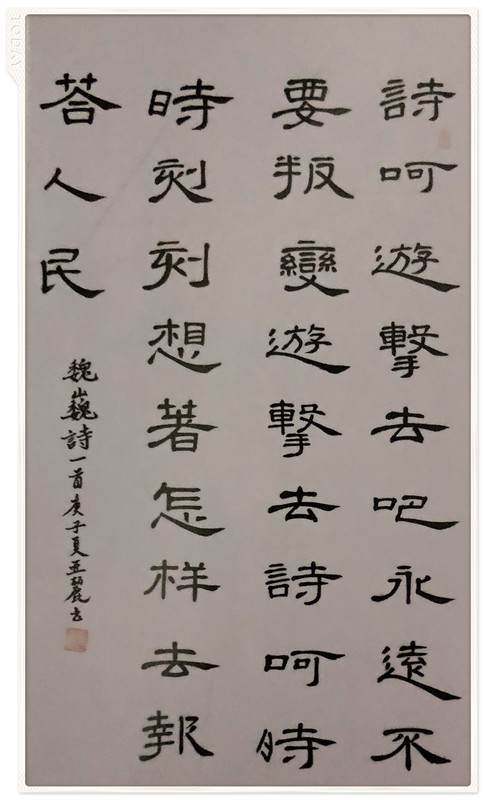 詩呵遊擊去吧永遠不
要叛變遊擊去詩呵時
時刻刻想著怎样去報
荅人民
魏巍詩一首庚子夏亚麗书
TODAY